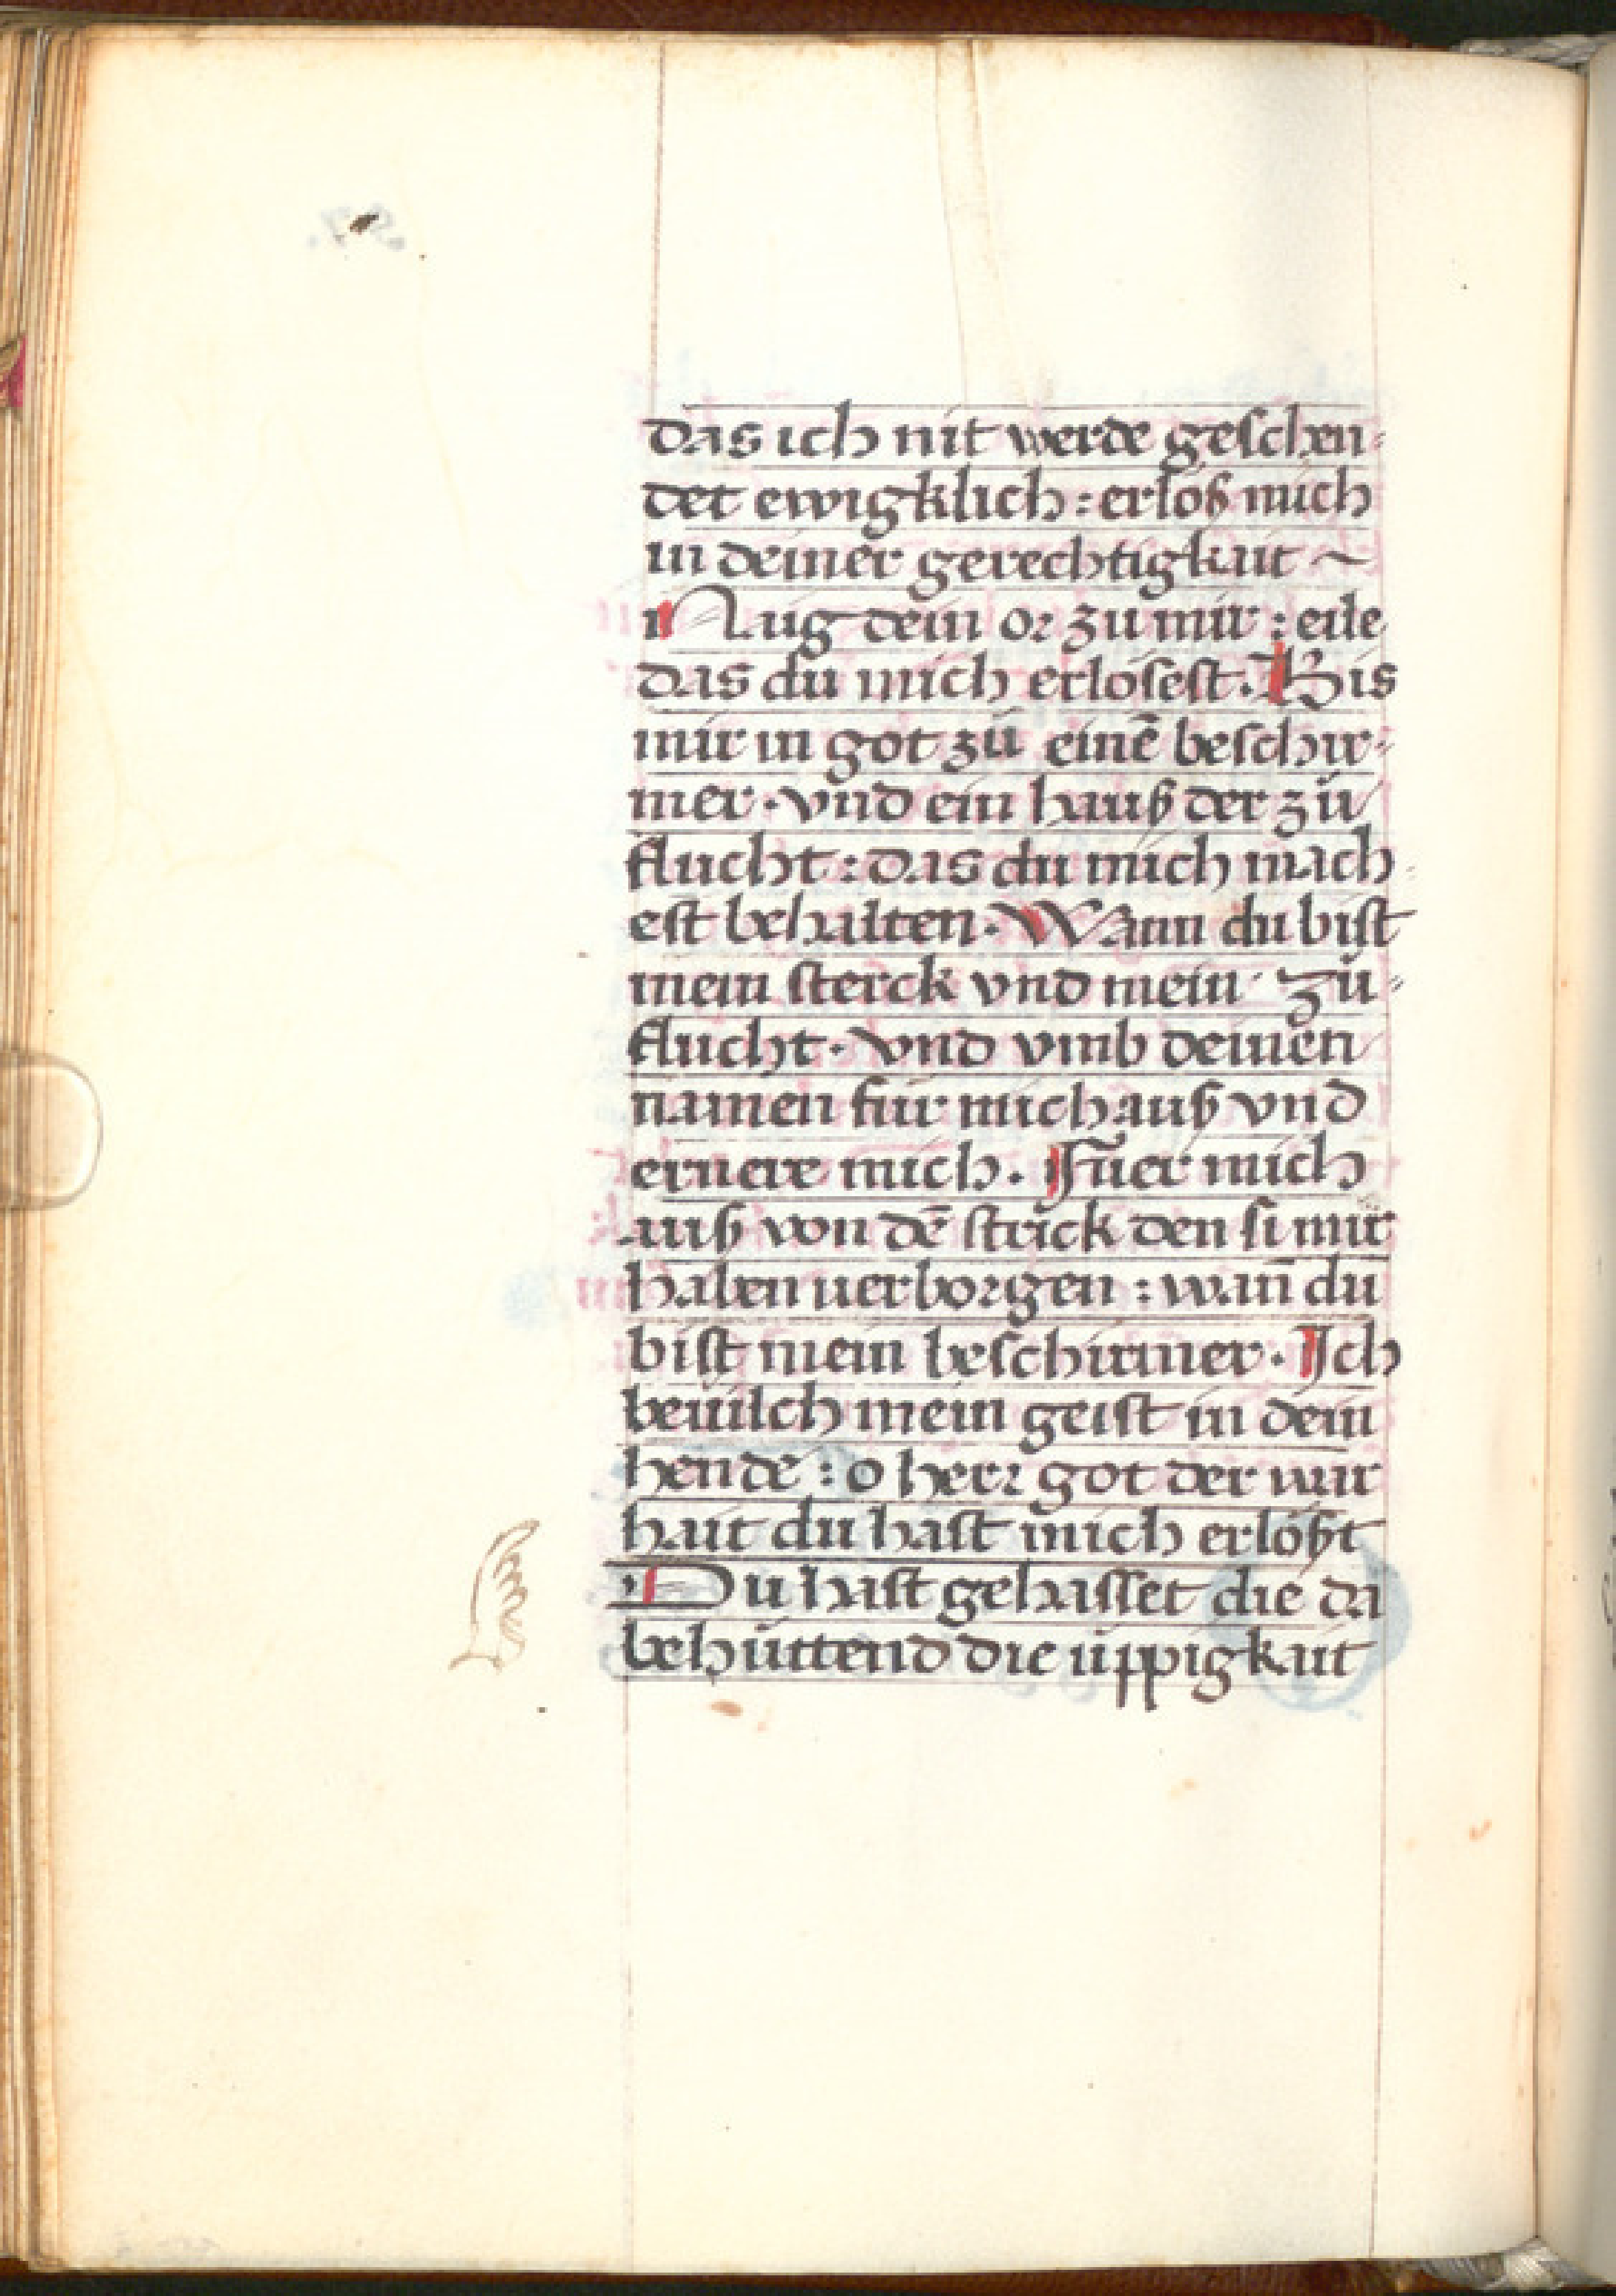 das ich nit werde geschen-
det ewigklich : erlöß mich
in deiner gerechtigkait ~
Naig dein or zu mir : eile
das du mich erlösest. Bis
mir in got zů einē beschir-
mer · vnd ein hauß der zů
flucht : das du mich mach-
est behalten. Wann du bist
mein sterck vnd mein zů-
flucht · vnd vmb deinen
namen für mich auß vnd
ernere mich. Füer mich
auß von dē strick den si mir
haben uerborgen : wañ du
bist mein beschirmer. Ich
beuilch mein geist in dein
hende : o herr got der war
hait du hast mich erlößt
Du hast gehasset die da
behüttend die üppigkait